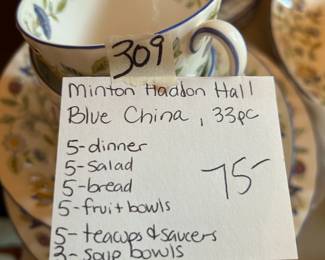 309
Minton Haddon Hall
Blue China, 33pc
5-dinner
5-salad
5-bread
75-
5-fruit bowls
5-teacups & saucers
3-soup bowls